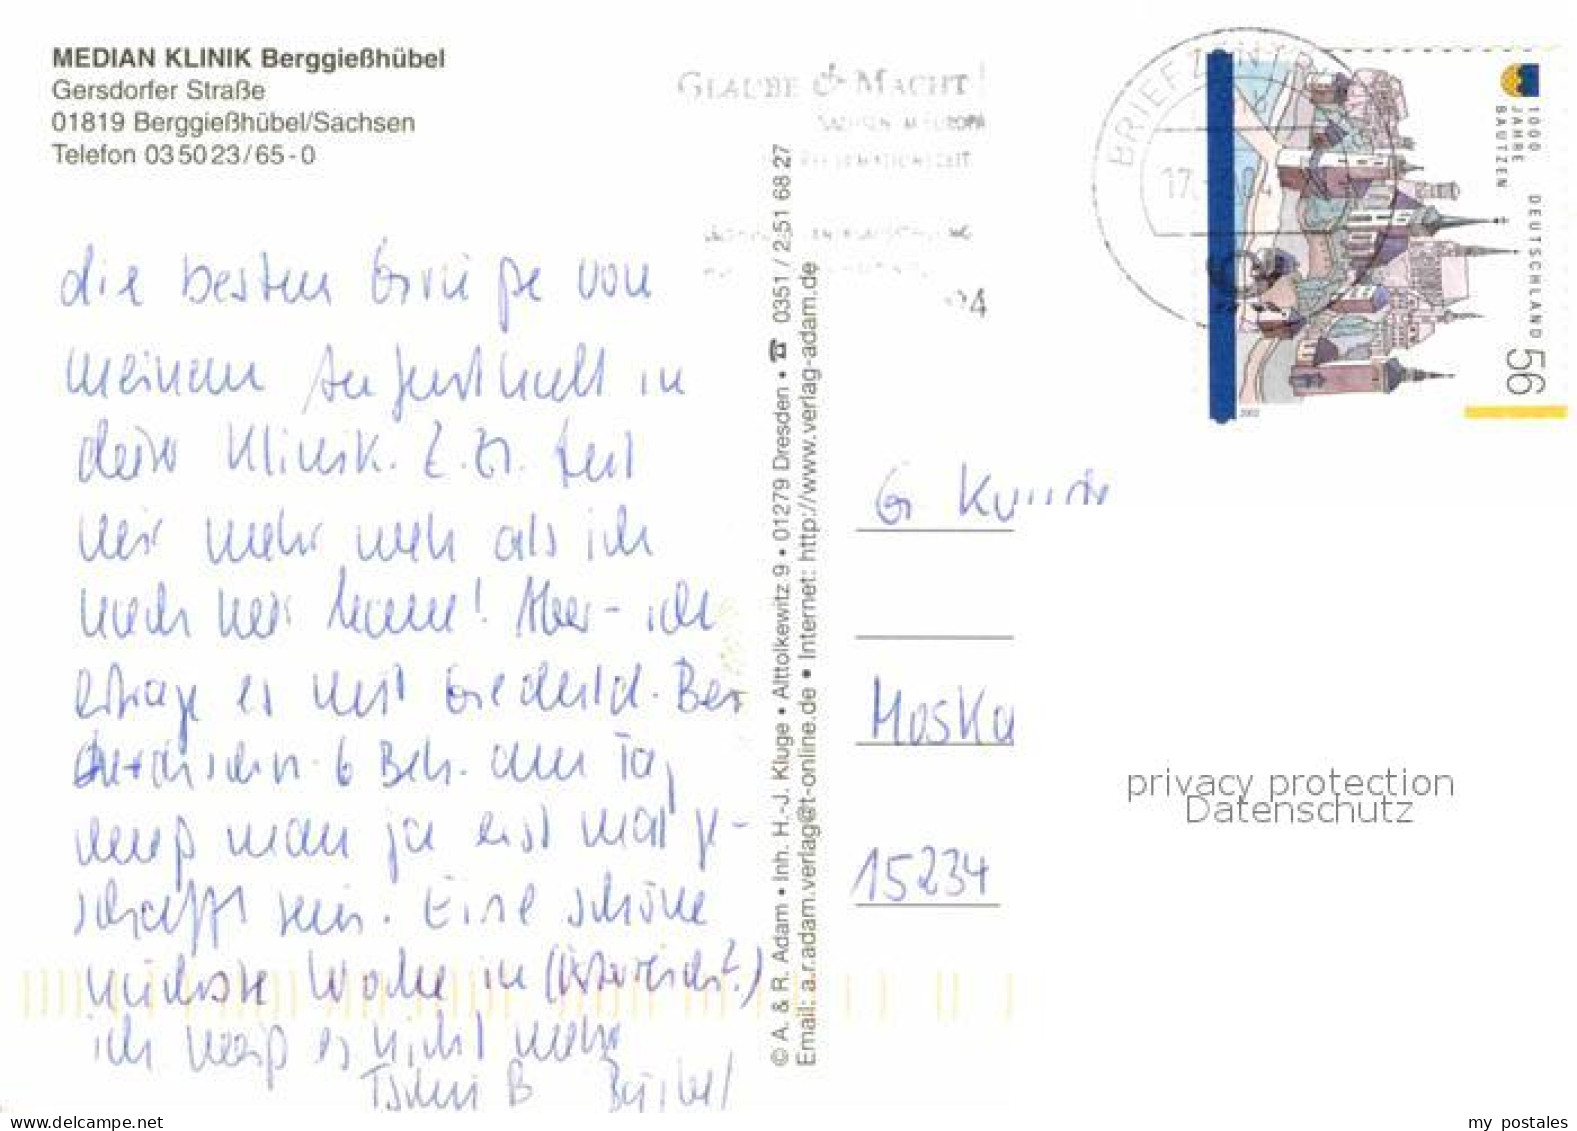 MEDIAN KLINIK Berggießhübel
Gersdorfer Straße
01819 Berggießhübel/Sachsen
Telefon 035023/65-0
GLAUBE & MACHT
SACHSEN IM EUROPA
04
BRIEFZENTR
17.
1000
JAHRE
BAUTZEN
DEUTSCHLAND
56
2002
die besten Grüße von
meinem Aufenthalt in
dieser Klinik. Z. Zt. tut
mir mehr weh als ich
noch her kam! Aber - ich
ertrage es mit Geduld. Bei
6 Beh. am Tag
muß man ja erst mal ge-
schafft sein. Eine schöne
nächste Woche in (Österreich?)
ich weiß es nicht mehr
Tschü B Bärbel
© A. & R. Adam • Inh. H.-J. Kluge • Alttolkewitz 9 • 01279 Dresden • ☎ 0351 / 2 51 68 27
Email: a.r.adam.verlag@t-online.de • Internet: http://www.verlag-adam.de
G
Moska
15234
privacy protection
Datenschutz
my postales